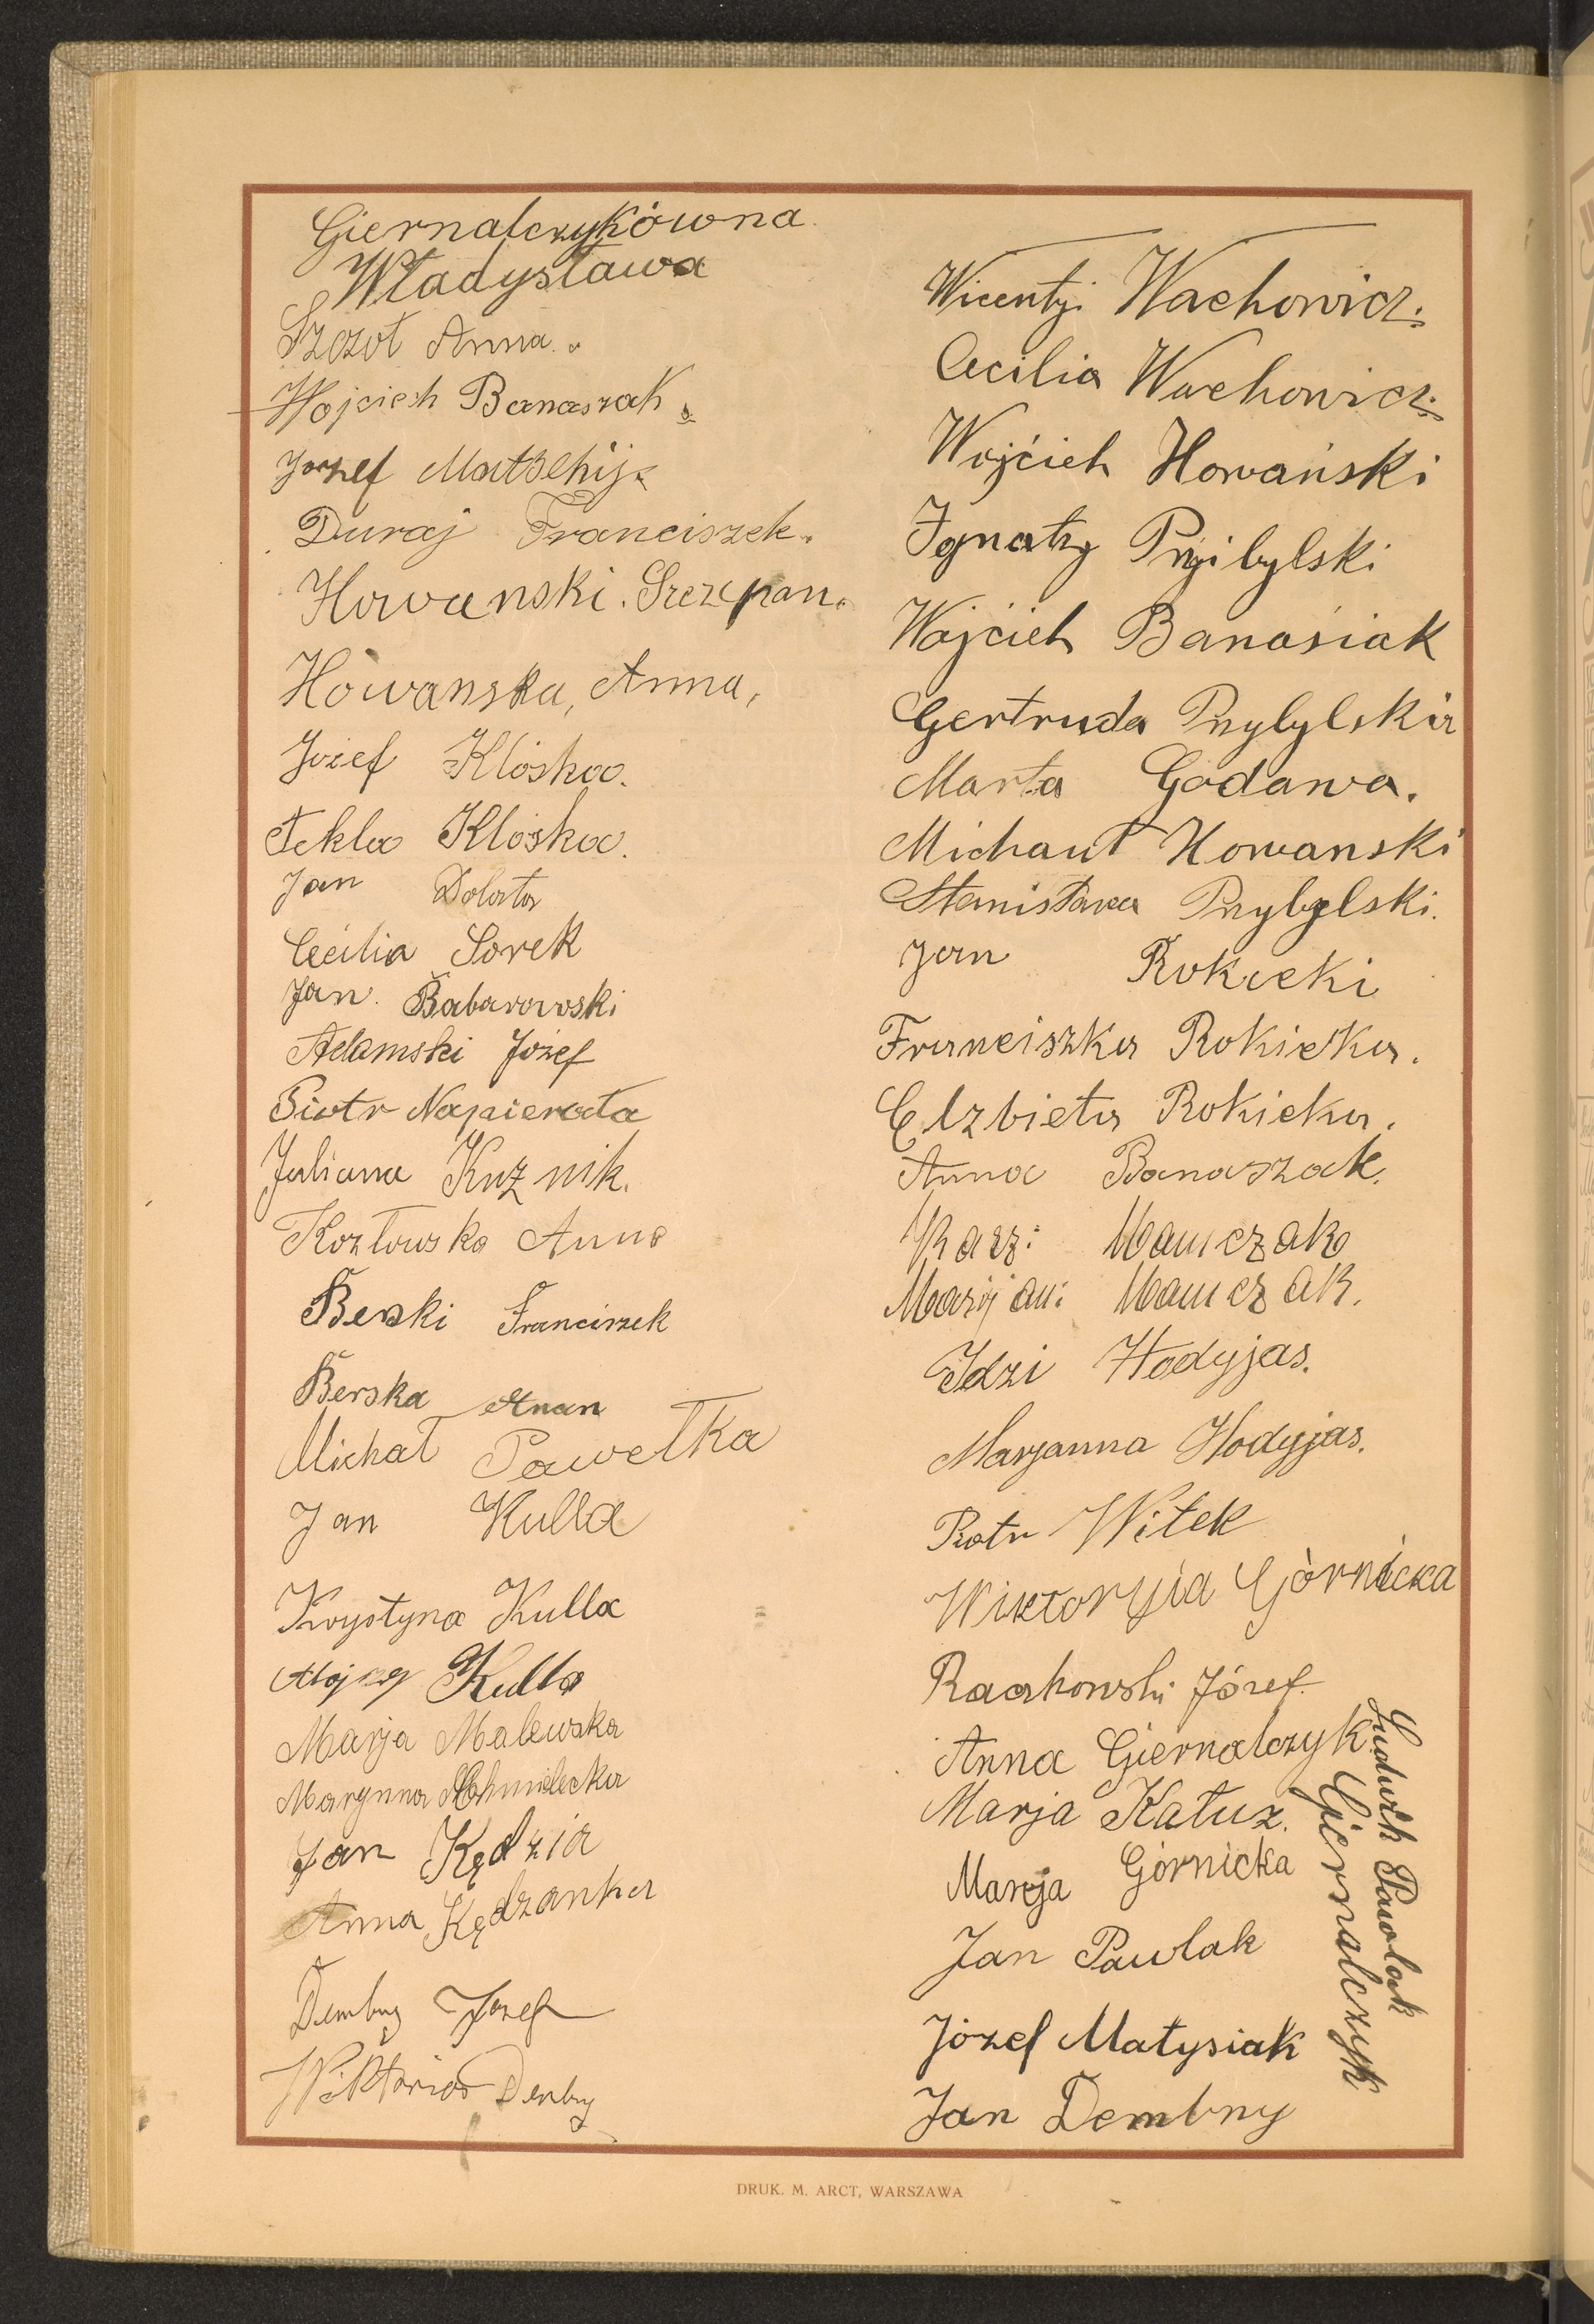 Giernalczykówna
Władysława
Szczot Anna.
Wojciech Banaszak
Jozef Matblhij
Duraj Franciszek.
Howanski. Szczepan.
Howanska, Anna,
Józef Klóska.
Tekla Klóska.
Jan Dolata
Cecilia Sorek
Jan Babarowski
Adamski Józef
Piotr Napierała
Juliana Kuźnik.
Kozłowska Anna
Berski Franciszek
Berska Anan
Michał Pawełka
Jan Kulla
Krystyna Kulla
Alojzy Kulla
Marja Malewska
Marynna Chmilecka
Jan Kędzia
Anna Kędzanka
Demby Jozef
Wiktoria Demby
Wicentyi Wachowicz.
Cecilia Wachowicz.
Wojćieh Howański
Ignatzy Pryibylski
Wojcieh Banasiak
Gertruda Przybylska
Marta Godawa.
Michauł Howanski
Stanisława Przybylski.
Jan Rokicki
Franciszka Rokicka.
Elzbieta Rokicka.
Anna Banaszak.
Kazi: Mamczak
Marijan: Mamczak.
Idzi Hodyjas.
Marjanna Hodyjas.
Piotr Witek
Wiktoryia Górnicka
Raczkowski Józef
Anna Giernalczyk
Marja Katuz.
Marja Górnicka
Jan Pawlak
Józef Matysiak
Jan Dembny
Ludwik Pawlak
Giernalczyk
DRUK. M. ARCT, WARSZAWA